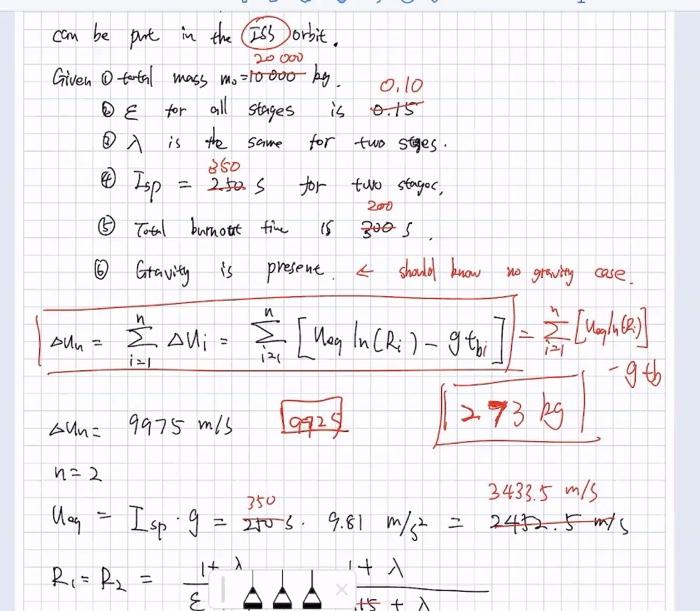 can be put in the ISS orbit.
20 000
Given ① total mass m₀ = 10 000 kg.
0.10
② ε for all stages is 0.15
③ λ is the same for two stges.
350
④ Isp = 250 s for two stages,
200
⑤ Total burnout time is 300 s.
⑥ Gravity is present. ← should know no gravity case.
Δun = Σ(i=1 to n) Δui = Σ(i=1 to n) [Ueq ln(Ri) - g tbi] = Σ(i=1 to n) [Ueq ln(Ri)] - g tb
Δun = 9975 m/s 9925 273 kg
n = 2
350 3433.5 m/s
Ueq = Isp · g = 250 s · 9.81 m/s² = 2452.5 m/s
R₁ = R₂ = 1 + λ 1 + λ
ε .15 + λ